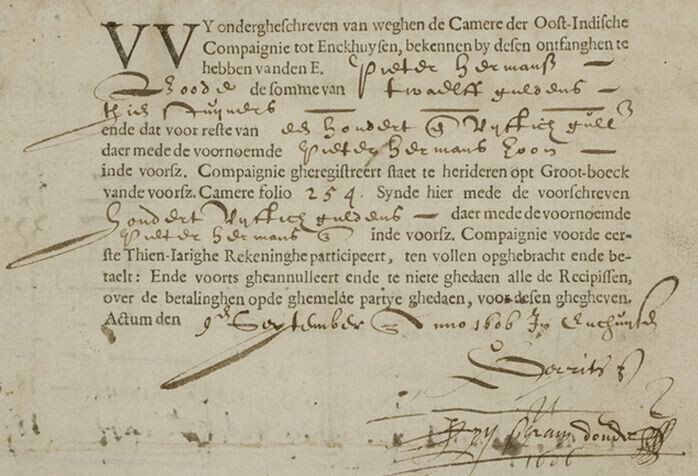 VVY ondergheschreven van weghen de Camere der Oost-Indische
Compaignie tot Enckhuysen, bekennen by desen ontfanghen te
hebben vanden E. Pieter Hermansz —
Roode de somme van twaelff guldens —
thien stuyvers
ende dat voor reste van een hondert & vyftich gull
daer mede de voornoemde Pieter Hermans zoon —
inde voorsz. Compaignie gheregistreert staet te herideren opt Groot-boeck
vande voorsz. Camere folio 254. Synde hier mede de voorschreven
hondert vyftich guldens — daer mede de voornoemde
Pieter Hermans inde voorsz. Compaignie voorde eer-
ste Thien-Iarighe Rekeninghe participeert, ten vollen opghebracht ende be-
taelt: Ende voorts gheannulleert ende te niete ghedaen alle de Recipissen,
over de betalinghen opde ghemelde partye ghedaen, voor desen ghegheven.
Actum den 9en September Anno 1606 In Enchuysen
Gerritsz
1606